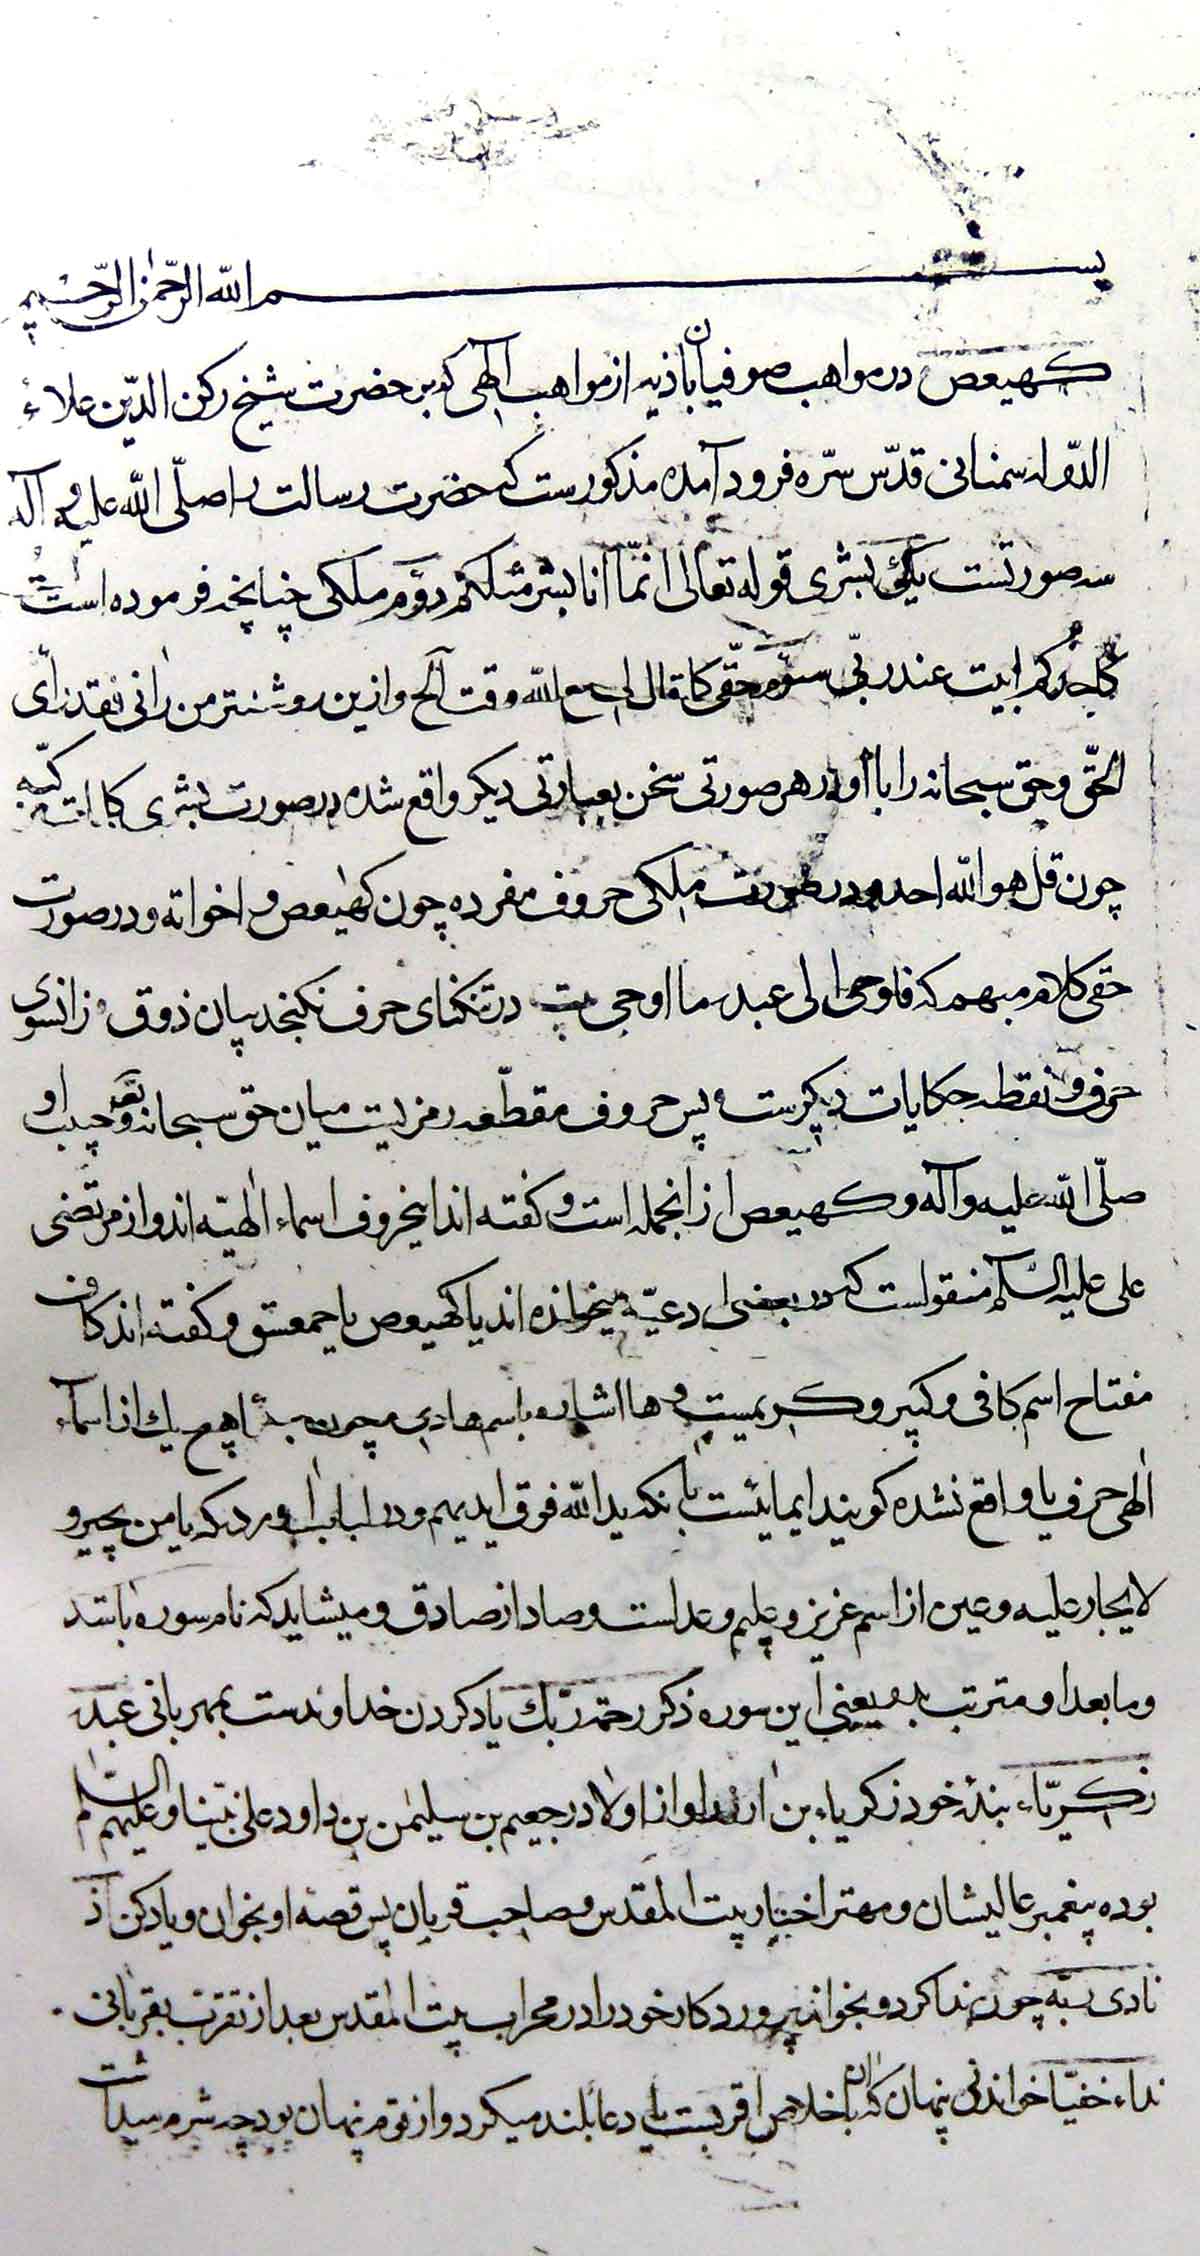 بسم الله الرّحمٰن الرّحیم
کهیعص در مواهب صوفیان باذیه از مواهب الٓهی که بر حضرت شیخ رکن الدّین علاء
الدّوله سمنانی قدّس سرّه فرود آمده مذکورست که حضرت رسالت را صلّی الله علیه و آله
سه صورتست یکی بشری قوله تعالی انّما انا بشر مثلکم دوّم ملکی چنانچه فرموده است لست
کاحدکم ابیت عند ربّی سوّم حقّی کما قال لی مع الله وقت الخ و ازین روشنتر من رانی فقد رای
الحقّ و حق سبحانه را با او در هر صورتی سخن بعبارتی دیکر واقع شده در صورت بشری کلمات مرکبه
چون قل هو الله احد و در صورت ملکی حروف مفرده چون کهیعص و اخواته و در صورت
حقی کلام مبهم که فاوحی الی عبده ما اوحی بیت در تنکنای حرف نکنجد بیان ذوق زانسوی
حرف و نقطه حکایات دیکرست پس حروف مقطّعه رمزیست میان حق سبحانه و تعه و حبیب او
صلّی الله علیه و آله و کهیعص از انجمله است و کفته اند اینحروف اسماء الٰهیّه اند و از مرتضی
علی علیه السّلام منقولست که در بعضی ادعیّه میخوانده اند یا کهیعص یا حمعسق و کفته اند کاف
مفتاح اسم کافی و کبیر و کریمست و ها اشاره باسم هادی و چون هیچ یك از اسمآء
الٰهی حرف یا واقع نشده کویند ایمائیست بانکه ید الله فوق ایدیهم و در لباب آورد که یا من یجیر و
لا یجار علیه و عین از اسم عزیز و علیم و عدلست و صاد از صادق و میشاید که نام سوره باشد
و ما بعد او مترتب بدو یعنی این سوره ذکر رحمة ربّك یاد کردن خداوندست بمهربانی عبده
زکریّاء بندهٔ خود زکریاء بن ازر او از اولاد رجعیم بن سلیمٰن بن داود علی نبیّنا و علیهم السّلم
بوده پیغمبر عالیشان و مهتر احبار بیت المقدس و صاحب قربان پس قصهٔ او بخوان و یاد کن اذ
نادی ربّه چون ندا کرد و بخواند پروردکار خود را در محراب بیت المقدس بعد از تقرّب بقربانی
نداء خفیّا خواندنی پنهان که ان باخلاص اقربست یا دعا بلند میکرد و از قوم پنهان بود چه شرم میداشت